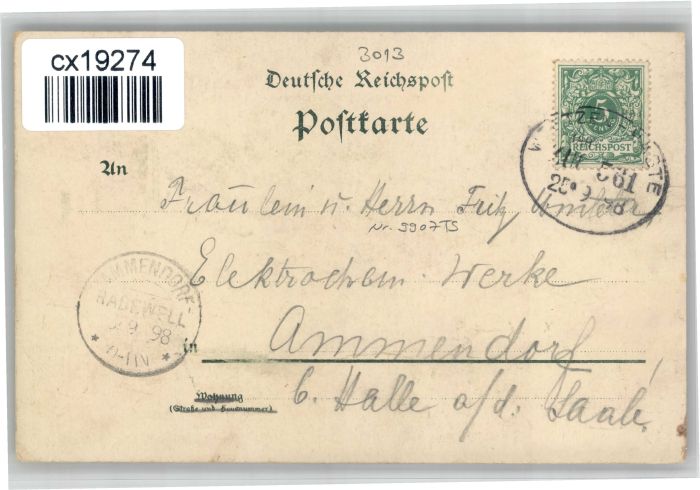 cx19274
3013
Deutsche Reichspost
Postkarte
5
REICHSPOST
561
25 9 98
An
Fräulein u. Herrn Fritz
Nr. 9907TS
Elektrochem. Werke
AMMENDORF-
RADEWELL
9 98
in Ammendorf
Wohnung
(Straße und Hausnummer)
b. Halle a/d. Saale.